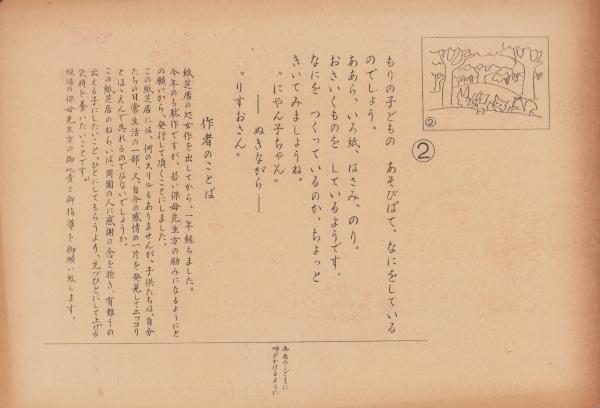 ②
②
もりの子どもの あそびばで、なにをしている
のでしょう。
ああら、いろ紙、はさみ、のり。
おさいくものを しているようです。
なにを つくっているのか、ちょっと
きいてみましょうね。
"にやん子ちゃん"
―― ぬきながら ――
"りすおさん"
作者のことば
紙芝居の処女作を出してから、一年経ちました。
今年のも駄作ですが、若い保母先生方の励みになるようにと
の願いから、発行して頂くことにしました。
この紙芝居には、何のスリルもありませんが、子供たちは、自分
たちの日常生活の一部、又、自分の感情の一片を発見してニッコリ
とほゝえんで呉れるのではないでしょうか。
この紙芝居のねらいは、周囲の人に感謝の念を抱き、有難うの
云える子にしたいこと、ひとにしてもらうより、先づひとにして上げる
気持を養いたいことです。
現場の保母先生方の御叱責と御指導を御願い致します。
画面のこどもに
呼びかけるように